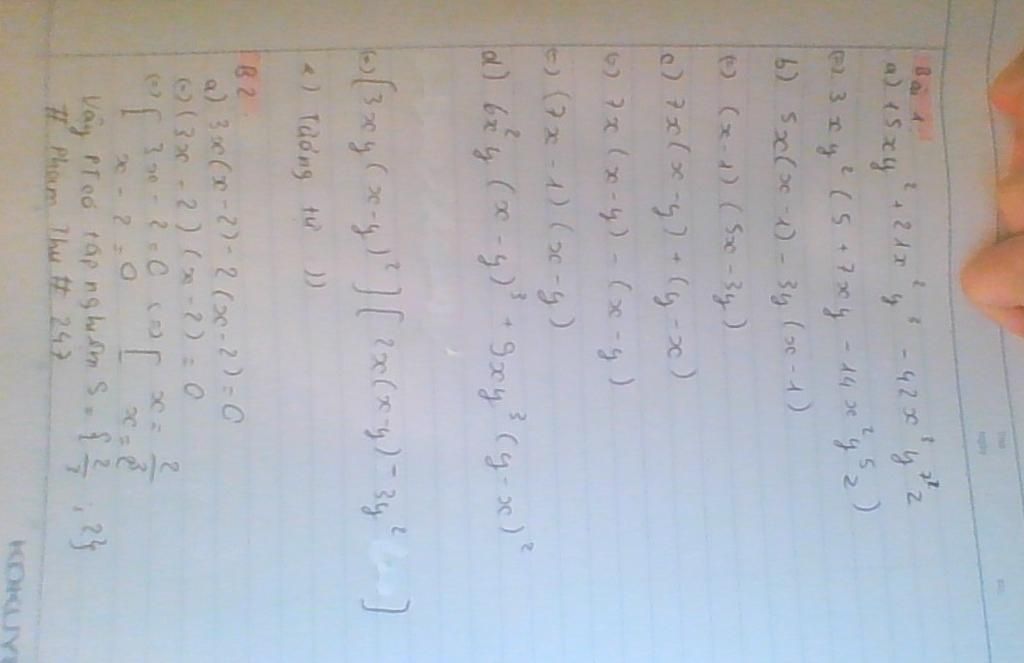 Bài 1
a) 15xy² + 21x²y³ - 42x³y⁷z
(=) 3xy² (5 + 7xy - 14x²y⁵z)
b) 5x(x-1) - 3y(x-1)
(=) (x-1)(5x-3y)
c) 7x(x-y) + (y-x)
(=) 7x(x-y) - (x-y)
(=) (7x-1)(x-y)
d) 6x²y (x-y)³ + 9xy³(y-x)²
(=) [3xy(x-y)²][2x(x-y) - 3y²]
e) Tương tự ))
B2
a) 3x(x-2) - 2(x-2) = 0
(=) (3x-2)(x-2) = 0
(=) [ 3x - 2 = 0 (=) [ x = 2/3
x - 2 = 0 x = 2
Vậy PT có tập nghiệm S = { 2/3 ; 2}
# Pham Thu # 247
KLONG